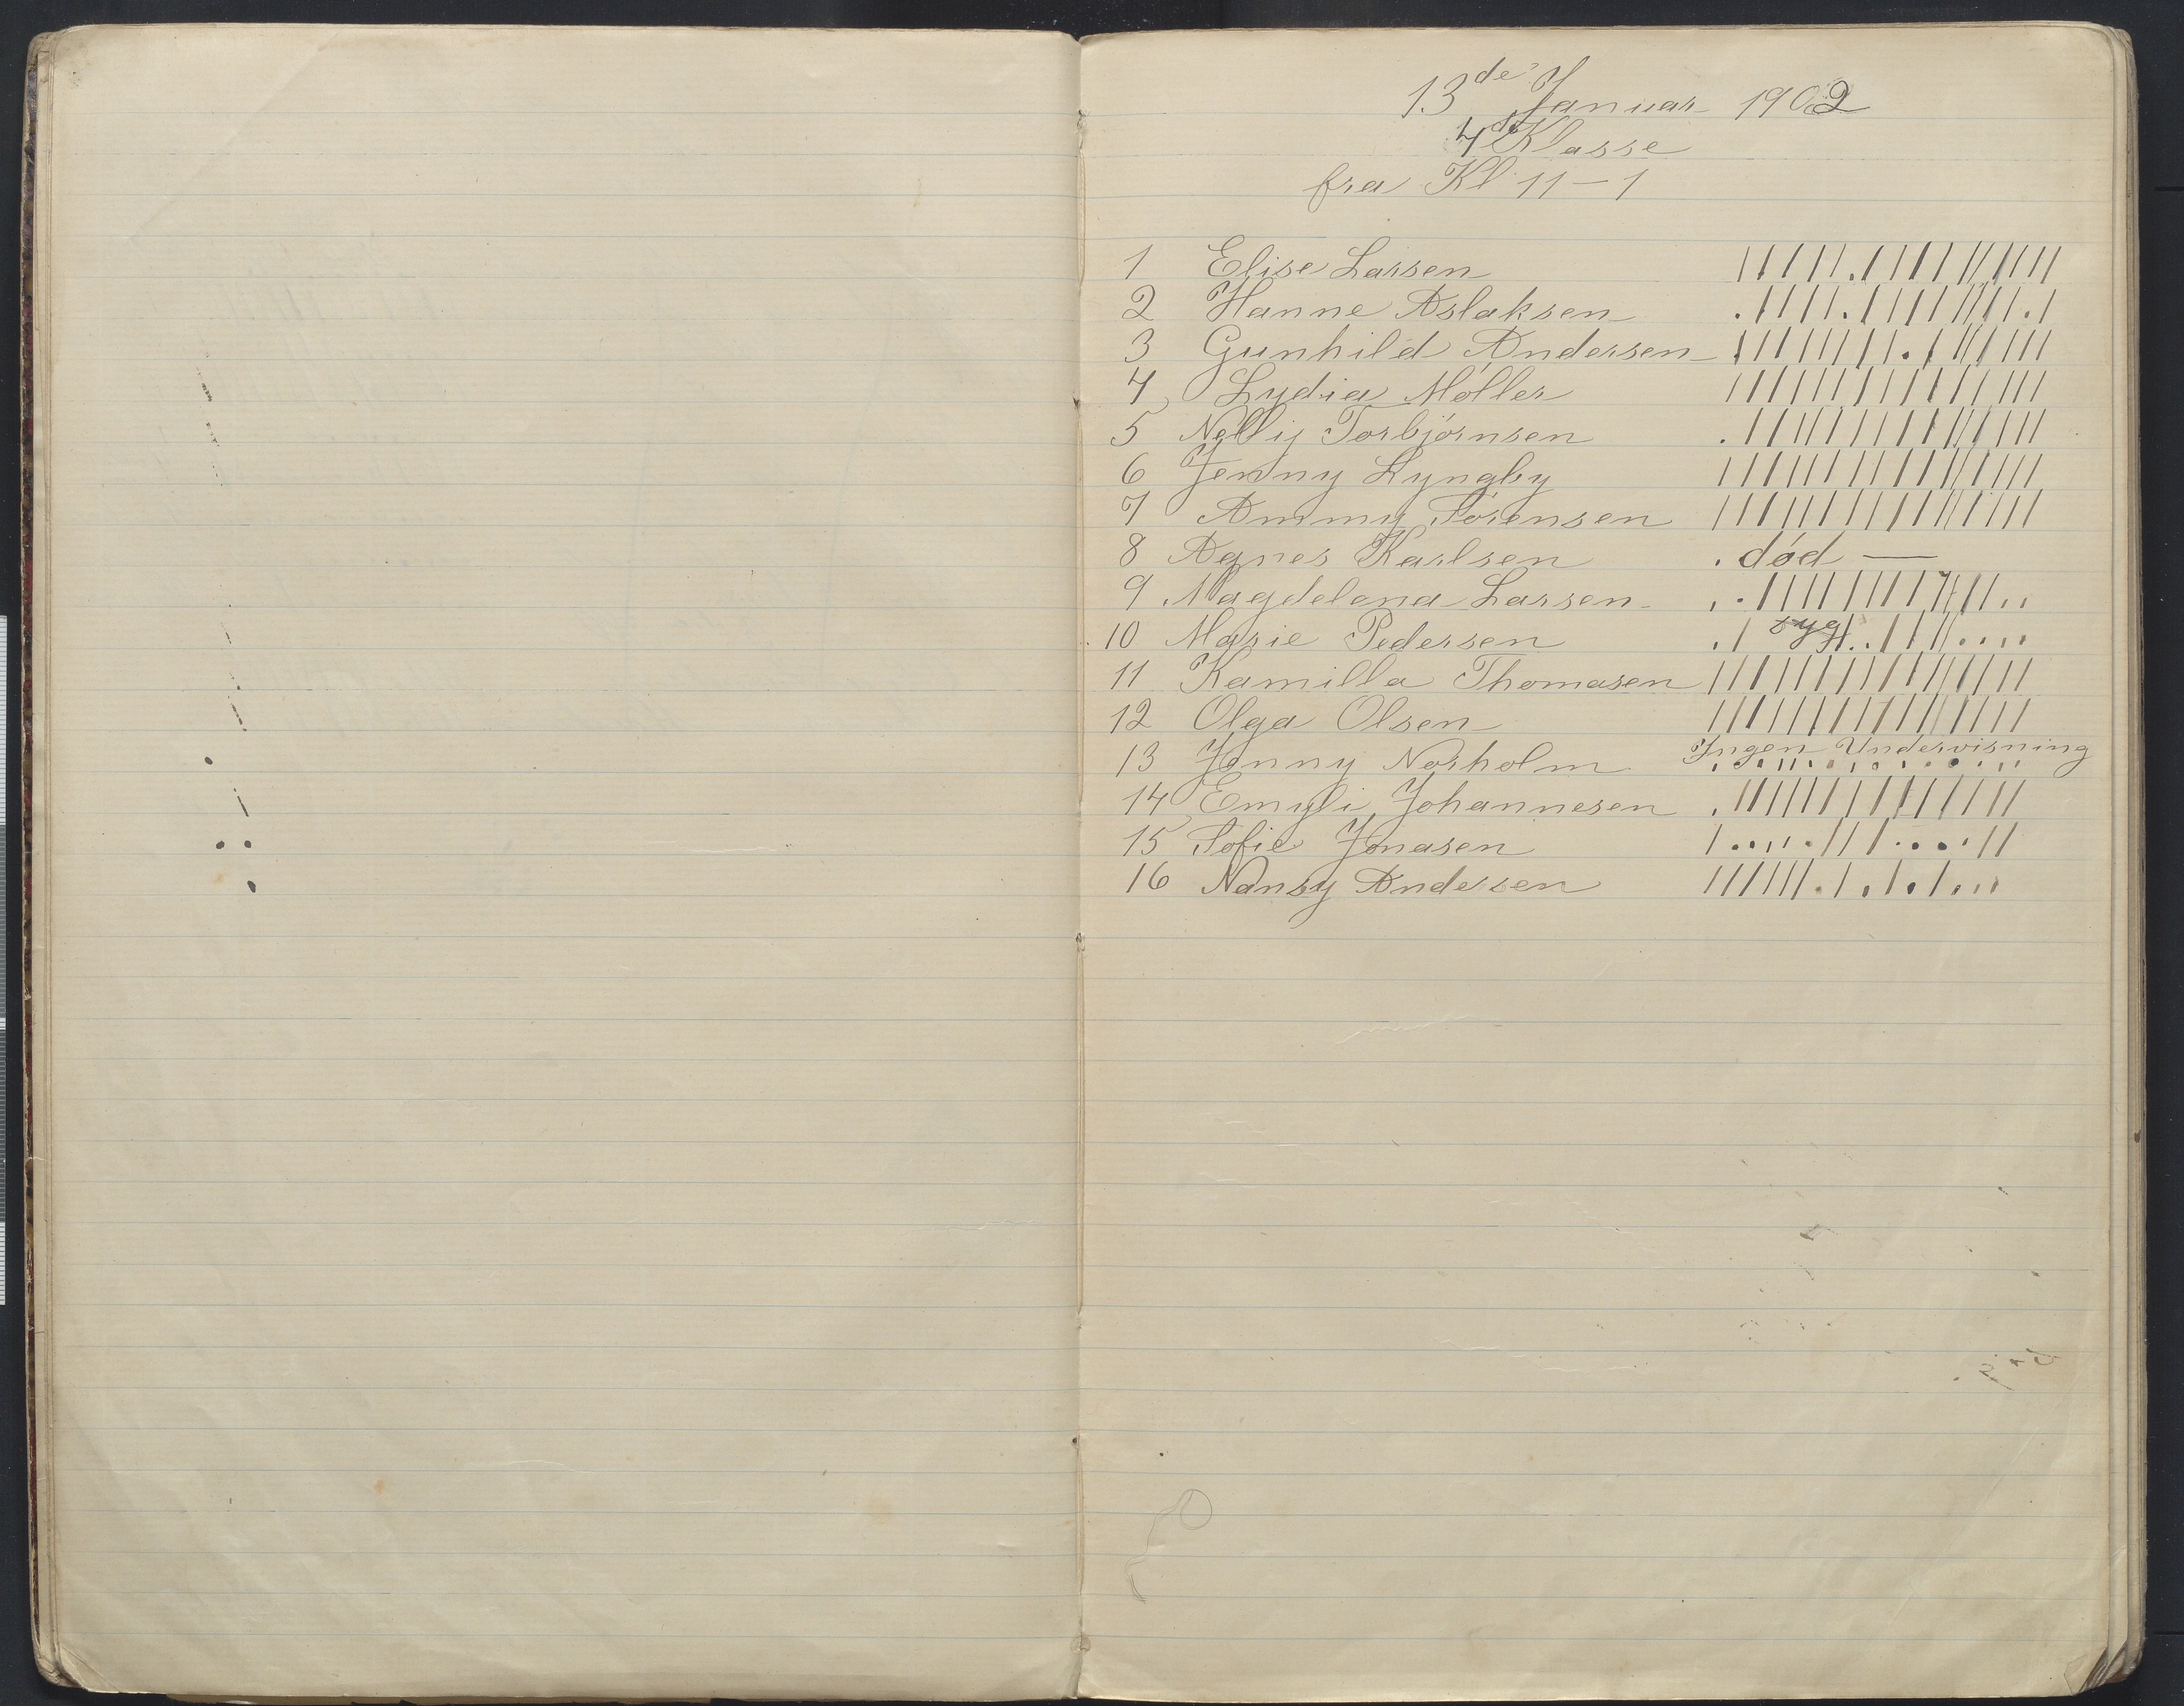 13de Januar 1902
4de Klasse
fra Kl 11-1
1 Elise Larsen
2 Hanne Aslaksen
3 Gunhild Andersen
4 Lydia Møller
5 Nelly Torbjørnsen
6 Jenny Lyngby
7 Ammy Sørensen
8 Agnes Karlsen . død —
9 Magdelena Larsen
10 Marie Pedersen syg
11 Kamilla Thomasen
12 Olga Olsen
13 Jenny Norholm Ingen Undervisning
14 Emyli Johannesen
15 Sofie Jonasen
16 Nansy Andersen